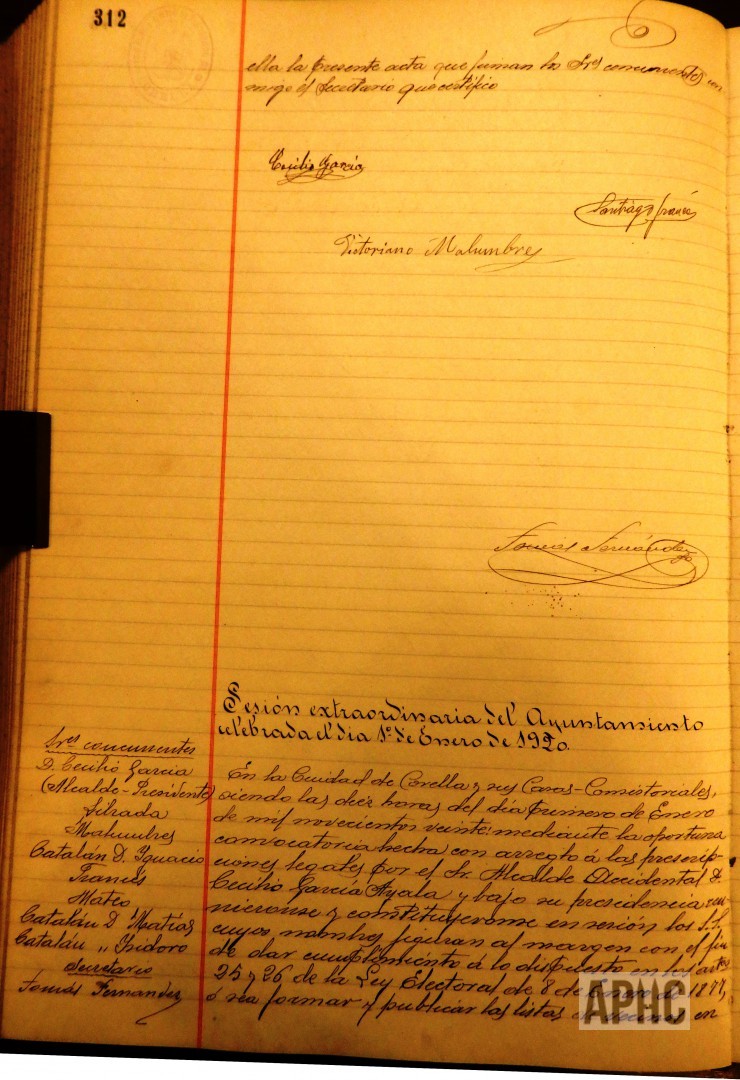 312
ella la presente acta que firman los Sres concurrentes con
migo el Secretario que certifico
Cecilio García
Santiago Francés
Victoriano Malumbres
Tomás Fernández
Sesión extraordinaria del Ayuntamiento
celebrada el día 1º de Enero de 1920.
Sres concurrentes
D. Cecilio Garcia
(Alcalde-Presidente)
Malumbres
Catalán D. Ignacio
Francés
Mateo
Catalán D Matías
Catalán " Isidoro
Secretario
Tomás Fernandez
En la Ciudad de Corella y sus Casas-Consistoriales,
siendo las diez horas del día primero de Enero
de mil novecientos veinte mediante la oportuna
convocatoria hecha con arreglo á las prescrip-
ciones legales por el Sr. Alcalde Accidental D.
Cecilio García Ayala y bajo su presidencia reu-
nieronse y constituyeronse en sesión los S.S.
cuyos nombres figuran al margen con el fin
de dar cumplimiento á lo dispuesto en los artos
25 y 26 de la Ley Electoral de 8 de Enero de 1877,
ó sea formar y publicar las listas de vecinos en
APHC